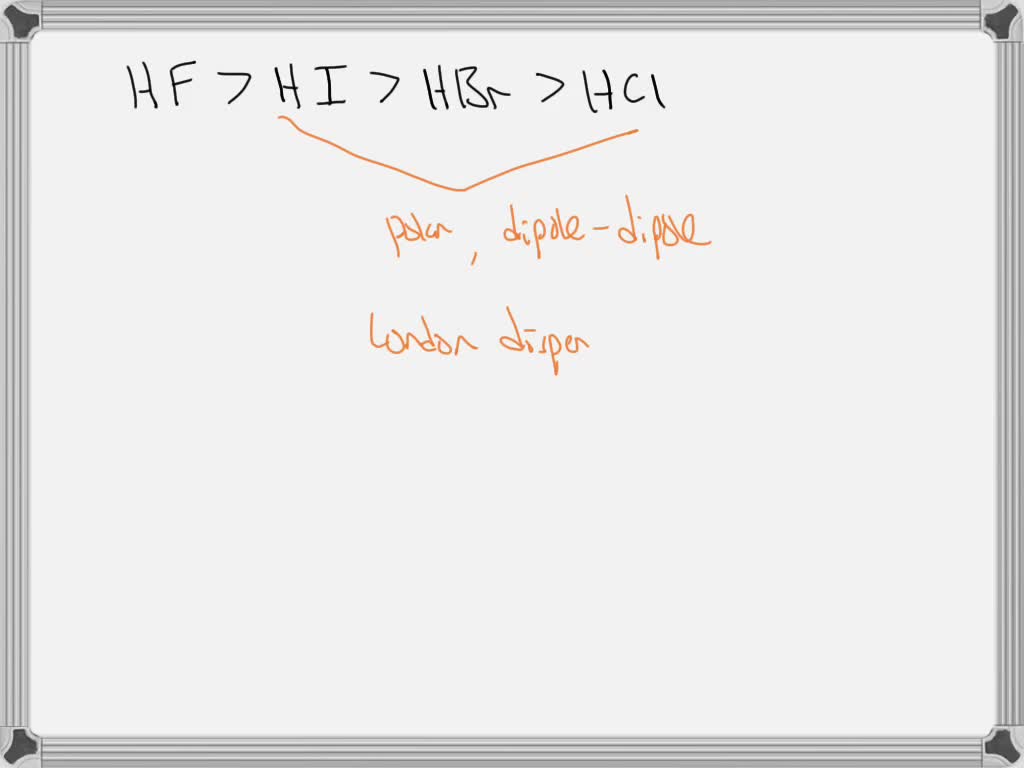 HF > HI > HBr > HCl
polar, dipole-dipole
London disper